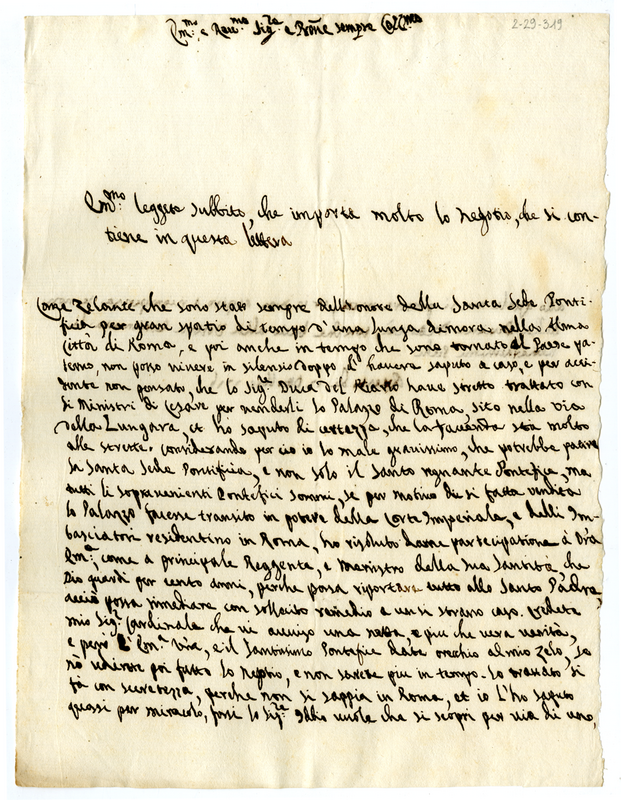 2-29-319
Em.mo e Rev.mo Sig.re e Prōne sempre Col.mo
Em.mo leggete subbito, che importa molto lo negotio, che si con-
tiene in questa lettera
Come Zelante che sono stato sempre dell'honore della Santa Sede Ponti-
ficia per gran spatio di tempo d'una lunga dimora nella Alma
Città di Roma, e poi anche in tempo che sono tornato al Paese pa-
terno, non posso vivere in silensio doppo d'havere saputo a caso, e per acci-
dente non pensato, che lo Sig.r Duca del have stretto trattato con
li Ministri di Cesare per venderli lo Palazzo di Roma, sito nella via
della Lungara, et ho saputo di certezza, che la facenda sta molto
alle strette. Considerando per ciò io lo male gravissimo, che potrebbe patire
la Santa Sede Pontificia, e non solo il Santo regnante Pontefice, ma
tutti li sopravenienti Pontefici Sommi, se per motivo di si fatta vendita
lo Palazzo facesse transito in potere della Corte Imperiale, e delli Im-
basciatori residentino in Roma, ho risoluto darne partecipatione à V'ra
Em.a come a principale Reggente, e Ministro della Sua Santità, che
Dio guardi per cento anni, perche possa riportare tutto allo Santo Padre,
acciò possa rimediare con sollecito remedio a un si strano caso. Credete
mio Sig.r Cardinale che vi avviso una netta, e più che vera verità,
e però l'Em.a V'ra, e il Santissimo Pontefice date orecchio al mio zelo, se
nò vedrete poi fatto lo Negotio, e non sarete più in tempo. Lo trattato si
fà con secretezza, perche non si sappia in Roma, et io l'ho saputo
quasi per miracolo, forsi lo Sig.re Iddio vuole che si scopri per via di uno,